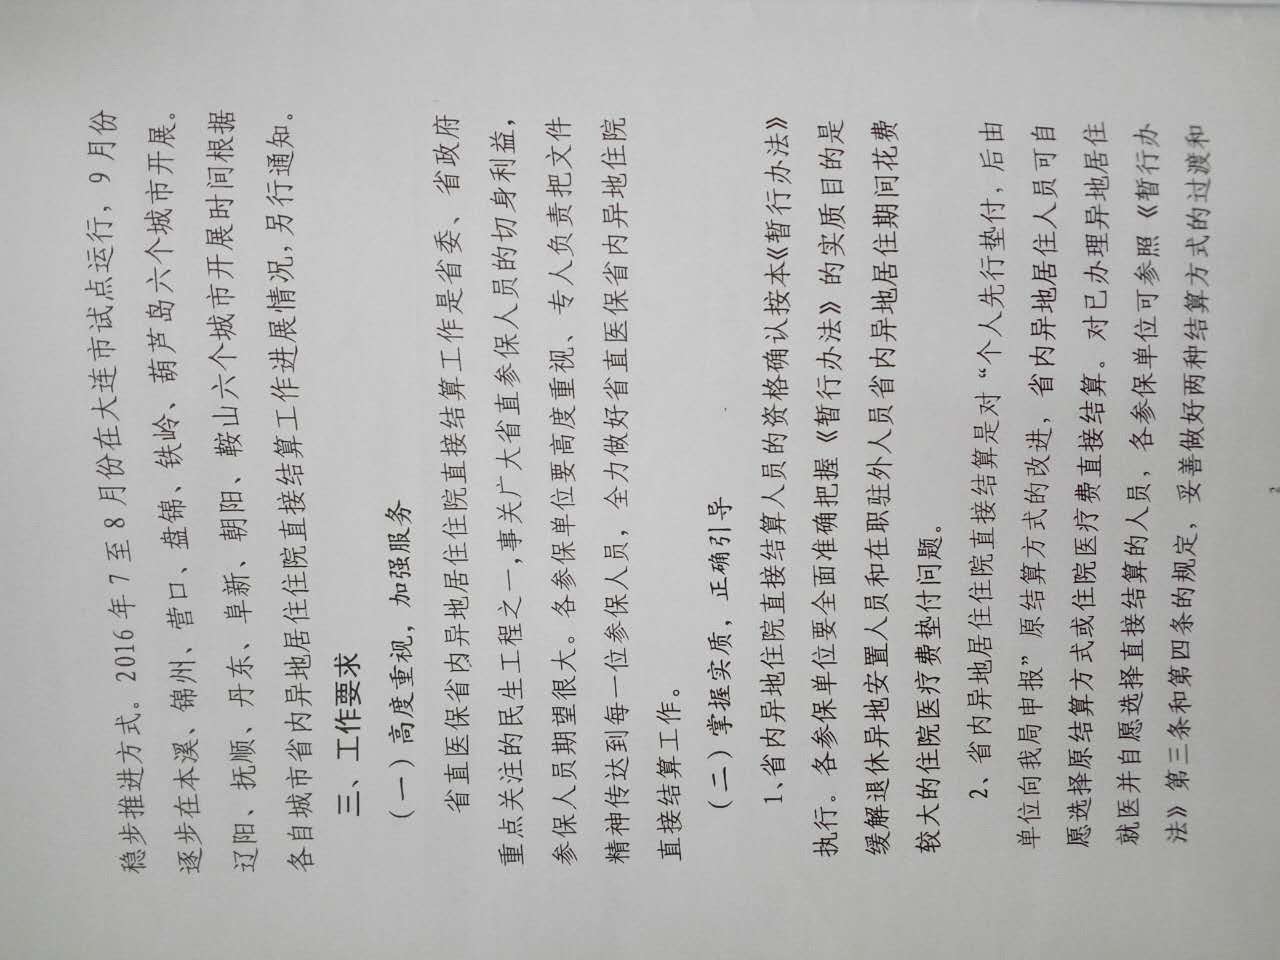 稳步推进方式。2016年7至8月份在大连市试点运行，9月份
逐步在本溪、锦州、营口、盘锦、铁岭、葫芦岛六个城市开展。
辽阳、抚顺、丹东、阜新、朝阳、鞍山六个城市开展时间根据
各自城市省内异地居住住院直接结算工作进展情况，另行通知。
三、工作要求
（一）高度重视，加强服务
省直医保省内异地居住住院直接结算工作是省委、省政府
重点关注的民生工程之一，事关广大省直参保人员的切身利益，
参保人员期望很大。各参保单位要高度重视、专人负责把文件
精神传达到每一位参保人员，全力做好省直医保省内异地住院
直接结算工作。
（二）掌握实质，正确引导
1、省内异地住院直接结算人员的资格确认按本《暂行办法》
执行。各参保单位要全面准确把握《暂行办法》的实质目的是
缓解退休异地安置人员和在职驻外人员省内异地居住期间花费
较大的住院医疗费垫付问题。
2、省内异地居住住院直接结算是对“个人先行垫付，后由
单位向我局申报”原结算方式的改进，省内异地居住人员可自
愿选择原结算方式或住院医疗费直接结算。对已办理异地居住
就医并自愿选择直接结算的人员，各参保单位可参照《暂行办
法》第三条和第四条的规定，妥善做好两种结算方式的过渡和
2